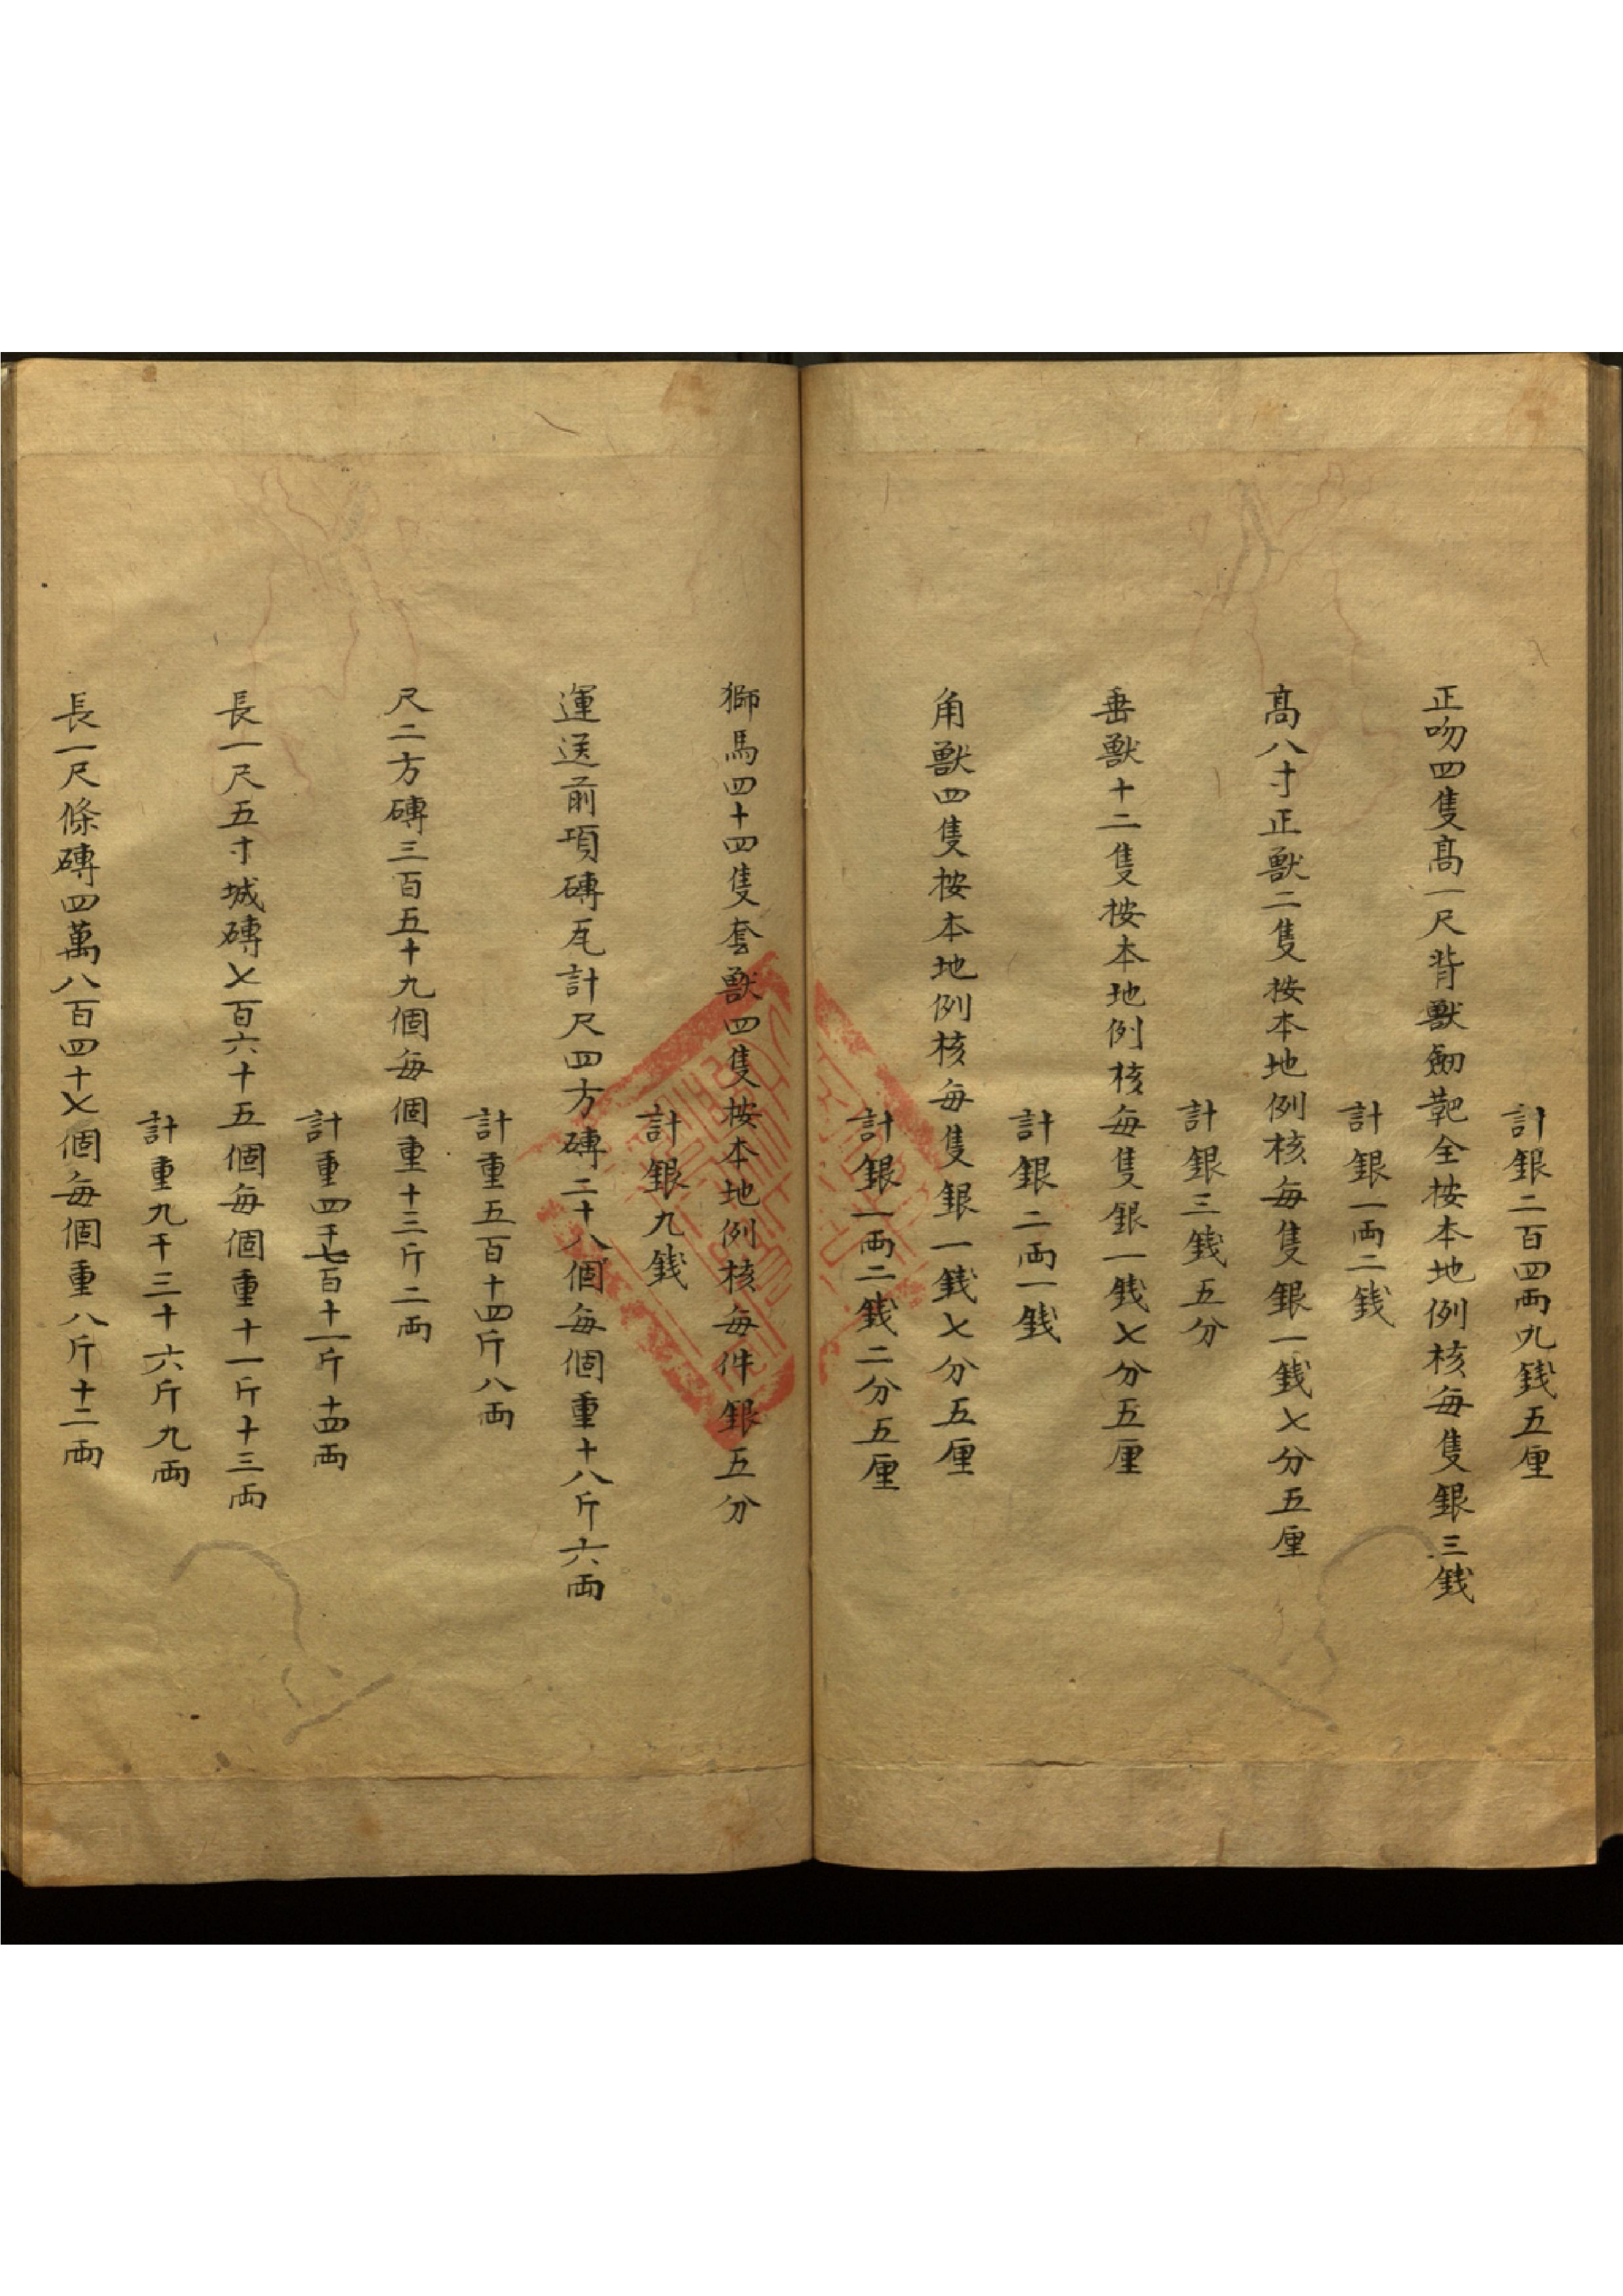 計銀二百四両九錢五厘
正吻四隻高一尺背獸劒靶全按本地例核每隻銀三錢
計銀一両二錢
高八寸正獸二隻按本地例核每隻銀一錢七分五厘
計銀三錢五分
垂獸十二隻按本地例核每隻銀一錢七分五厘
計銀二両一錢
角獸四隻按本地例核每隻銀一錢七分五厘
計銀一両二錢二分五厘
獅馬四十四隻套獸四隻按本地例核每件銀五分
計銀九錢
運送前項磚瓦計尺四方磚二十八個每個重十八斤六両
計重五百十四斤八両
尺二方磚三百五十九個每個重十三斤二両
計重四千七百十一斤十四両
長一尺五寸城磚七百六十五個每個重十一斤十三両
計重九千三十六斤九両
長一尺條磚四萬八百四十七個每個重八斤十二両